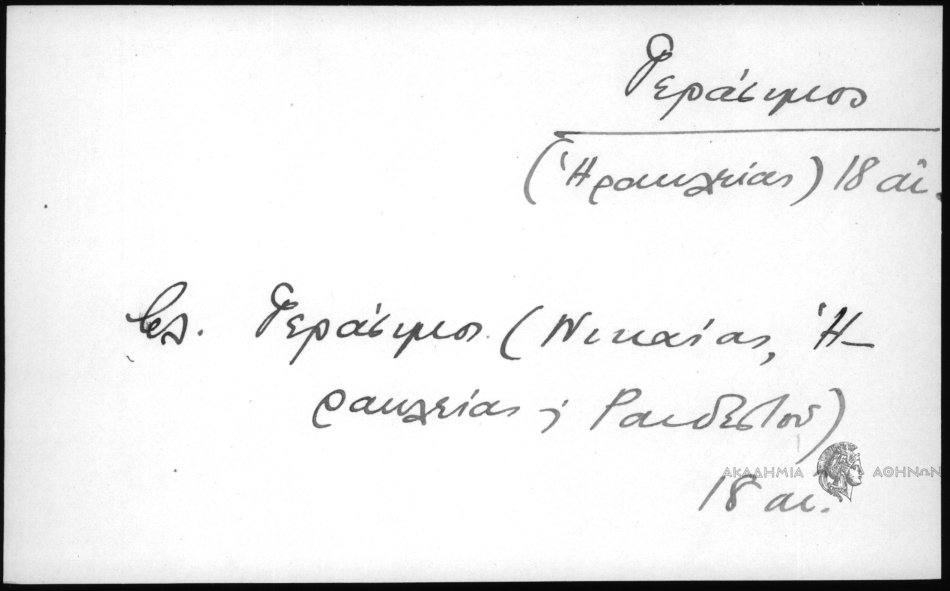 Γεράσιμος
(Ἡρακλείας) 18 αἰ.
βλ. Γεράσιμος (Νικαίας, Ἡ-
ρακλείας ἤ Ραιδεστοῦ)
ΑΚΑΔΗΜΙΑ ΑΘΗΝΩΝ
18 αι.